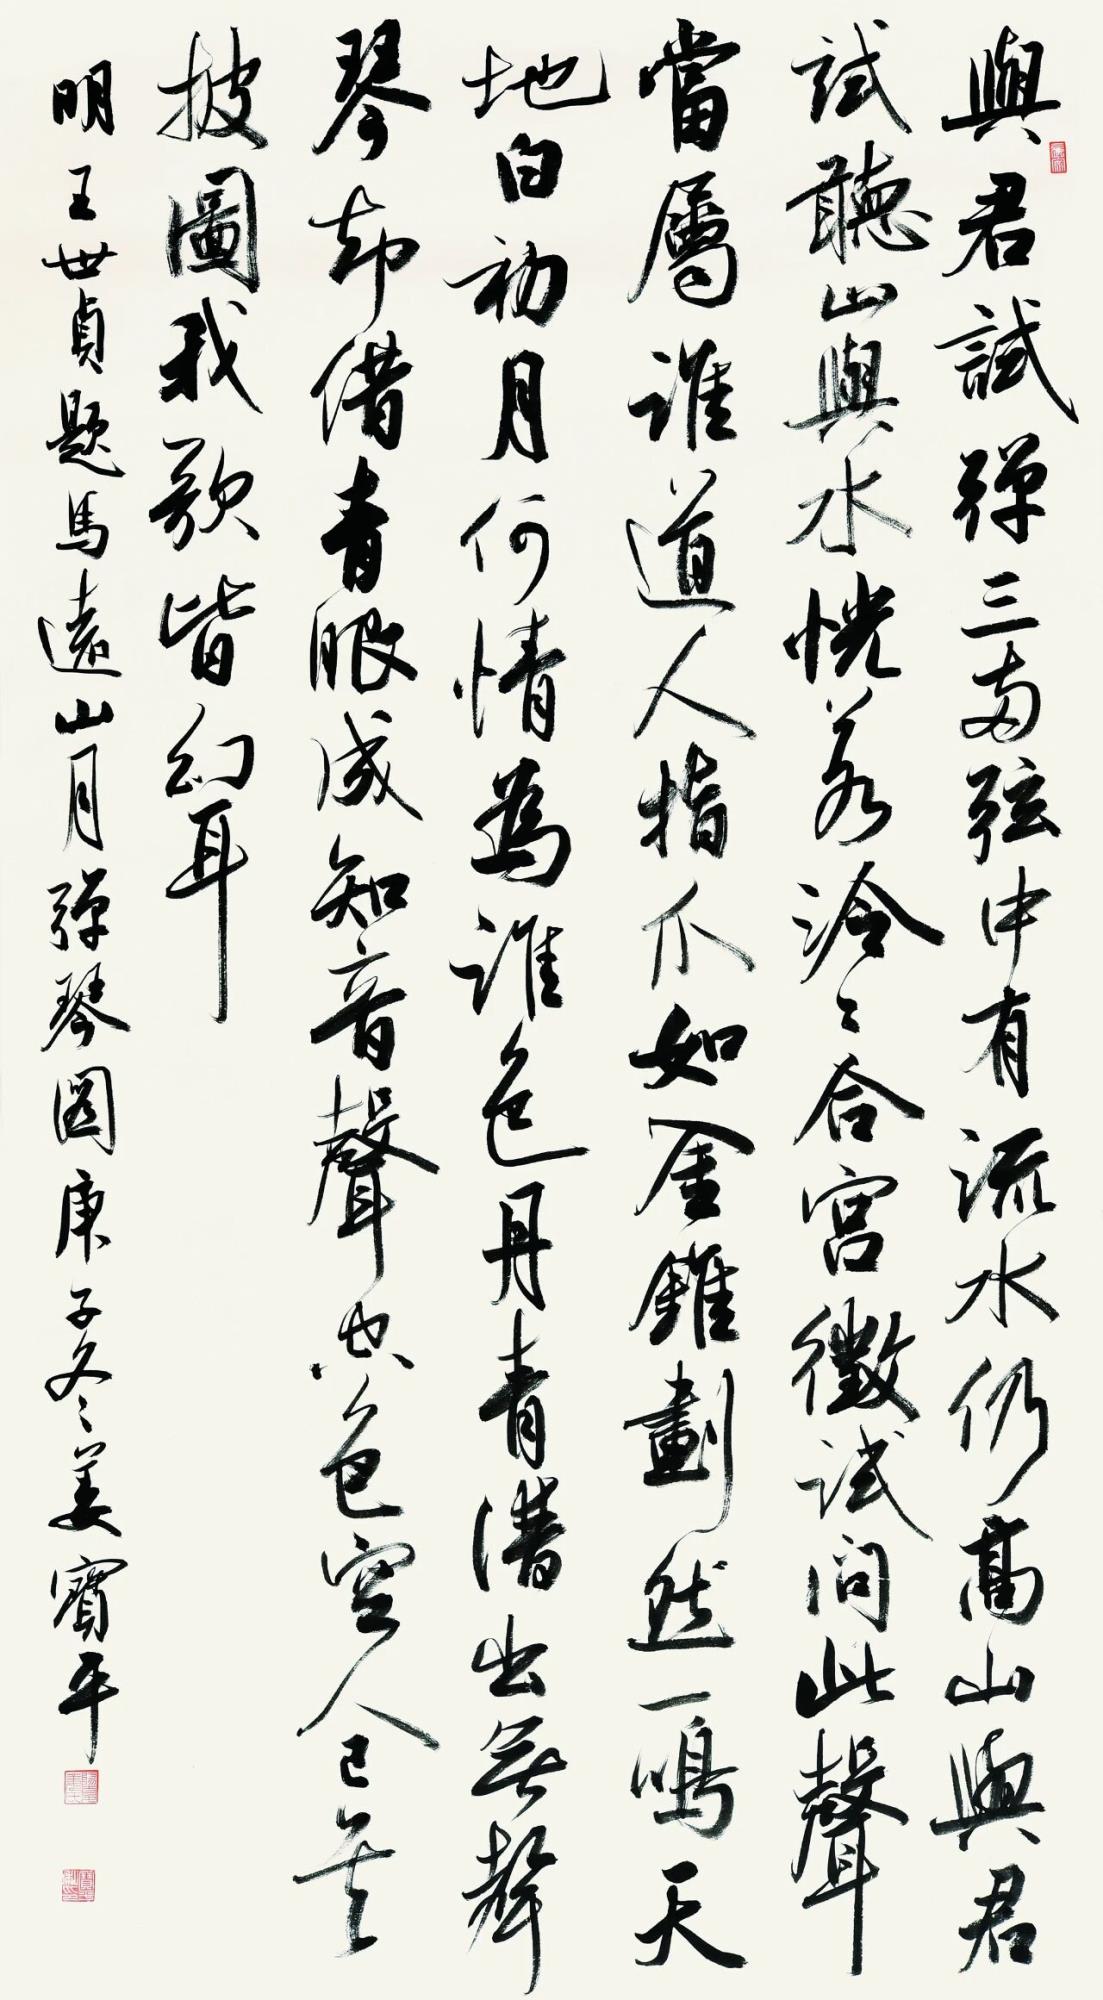 與君試彈三兩弦中有流水仍高山與君
試聽山與水恍若泠々合宮徵試問此聲
當屬誰道人指爪如金錐劃然一鳴天
地白初月何情為誰色丹青潛出無聲
琴却借青眼成知音聲也色空人已矣
披圖我歌皆幻耳
明王世貞題馬遠山月彈琴圖庚子冬姜寶平